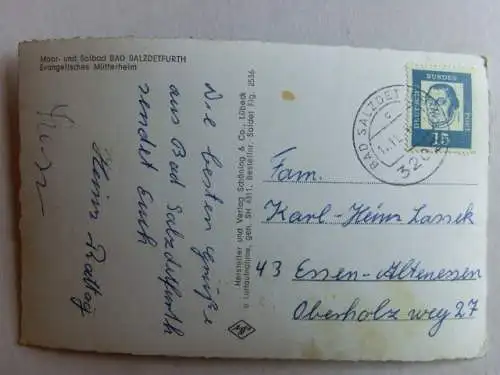 Moor- und Solbad BAD SALZDETFURTH
Evangelisches Mütterheim
Die besten Grüße
aus Bad Salzdetfurth
sendet Euch
Heinz
Hersteller und Verlag Schöning & Co., Lübeck
Luftaufnahme, gen. SH 4311, Bestellnr. Saldet Flg. 2536
BAD SALZDET
320
DEUTSCHE BUNDESPOST
15
Fam.
Karl-Heinz Lassek
43 Essen-Altenessen
Oberholz weg 27